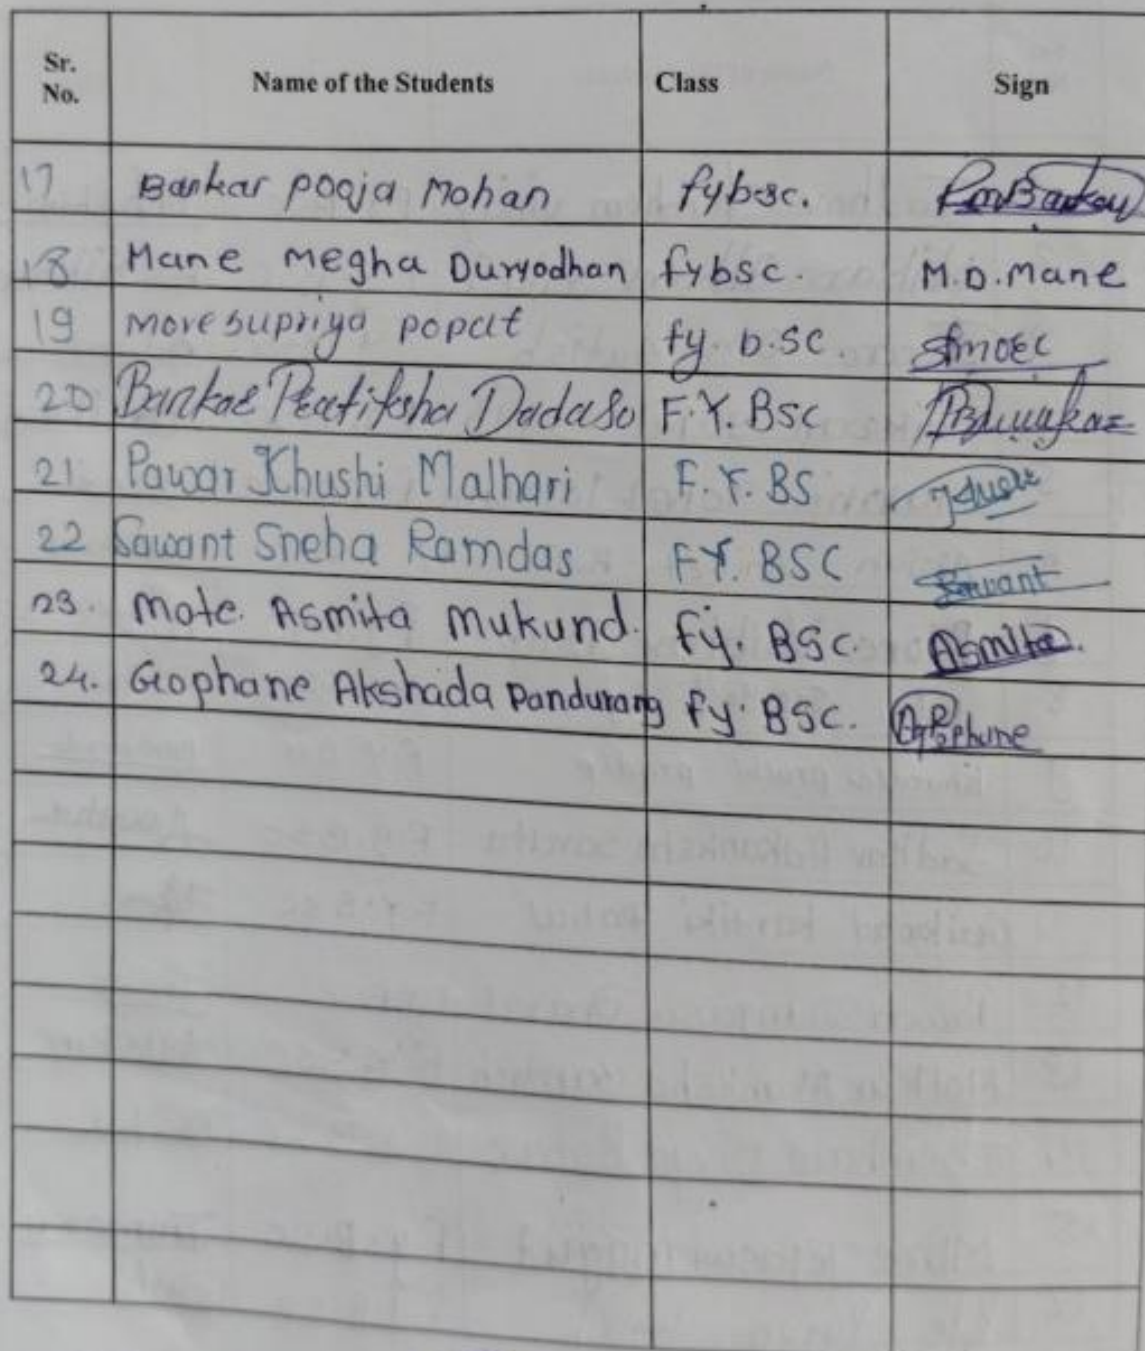 Sr. No. Name of the Students Class Sign
17 Bankar pooja Mohan fybsc.
18 Mane megha Duryodhan fybsc. M.D.Mane
19 more supriya popat fy. b.sc.
20 Bankar Pratiksha Dadaso F.Y. BSC
21 Pawar Khushi Malhari F.Y. BS
22 Sawant Sneha Ramdas FY. BSC Sawant
23. Mote. Asmita Mukund. fy. BSC. Asmita.
24. Gophane Akshada Pandurang fy. BSC.